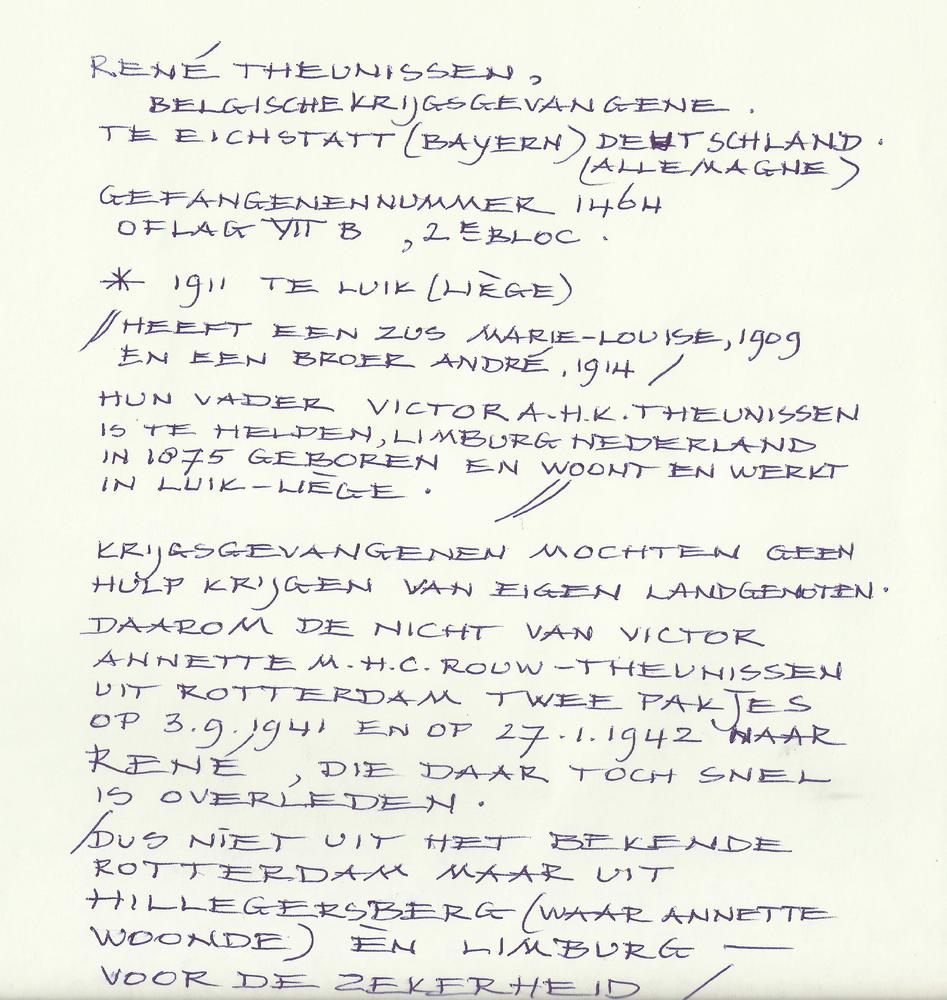 RENÉ THEUNISSEN,
BELGISCHE KRIJGSGEVANGENE.
TE EICHSTATT (BAYERN) DEUTSCHLAND.
(ALLEMAGNE)
GEFANGENENNUMMER 1464
OFLAG VII B , 2E BLOC.
* 1911 TE LUIK (LIÈGE)
// HEEFT EEN ZUS MARIE-LOUISE, 1909
EN EEN BROER ANDRÉ, 1914 /
HUN VADER VICTOR A.H.K. THEUNISSEN
IS TE HELDEN, LIMBURG NEDERLAND
IN 1875 GEBOREN EN WOONT EN WERKT
IN LUIK-LIÈGE. //
KRIJGSGEVANGENEN MOCHTEN GEEN
HULP KRIJGEN VAN EIGEN LANDGENOTEN.
DAAROM DE NICHT VAN VICTOR
ANNETTE M.H.C. ROUW-THEUNISSEN
UIT ROTTERDAM TWEE PAKJES
OP 3.9.1941 EN OP 27.1.1942 NAAR
RENÉ, DIE DAAR TOCH SNEL
IS OVERLEDEN.
/ DUS NIET UIT HET BEKENDE
ROTTERDAM MAAR UIT
HILLEGERSBERG (WAAR ANNETTE
WOONDE) ÈN LIMBURG —
VOOR DE ZEKERHEID /